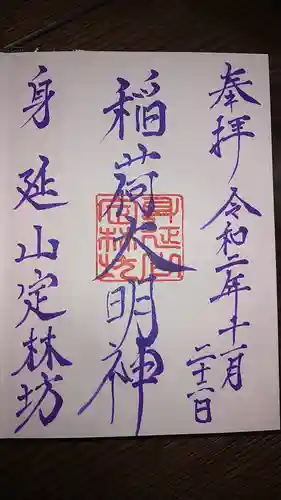 奉拝 令和二年十一月
二十二日
稲荷大明神
身延山定林坊
身延山
定林坊